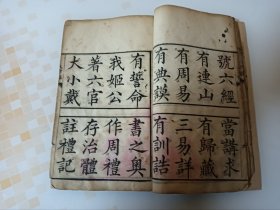 號六經當講求
有連山有歸藏
有周易三易詳
有典謨有訓誥
有誓命書之奧
我姬公作周禮
著六官存治體
大小戴註禮記